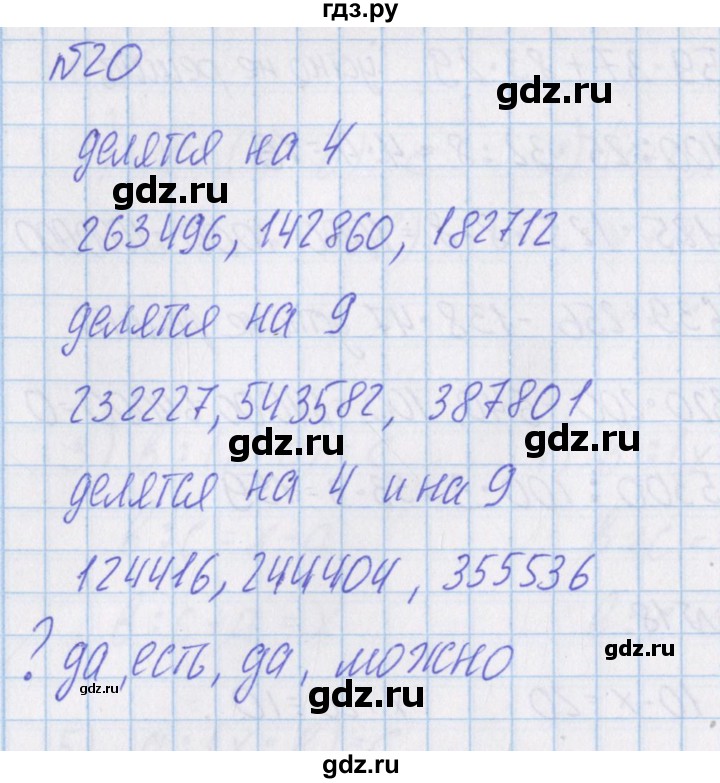 гдз.ру
№20
gdz.ru
делятся на 4
gdz.ru
263496, 142860, 182712
делятся на 9
232227, 543582, 387801
gdz.ru
gdz.ru
делятся на 4 и на 9
124416, 244404, 355536
? да, есть, да, можно
gdz.ru
gdz.ru
gdz.ru
gdz.ru